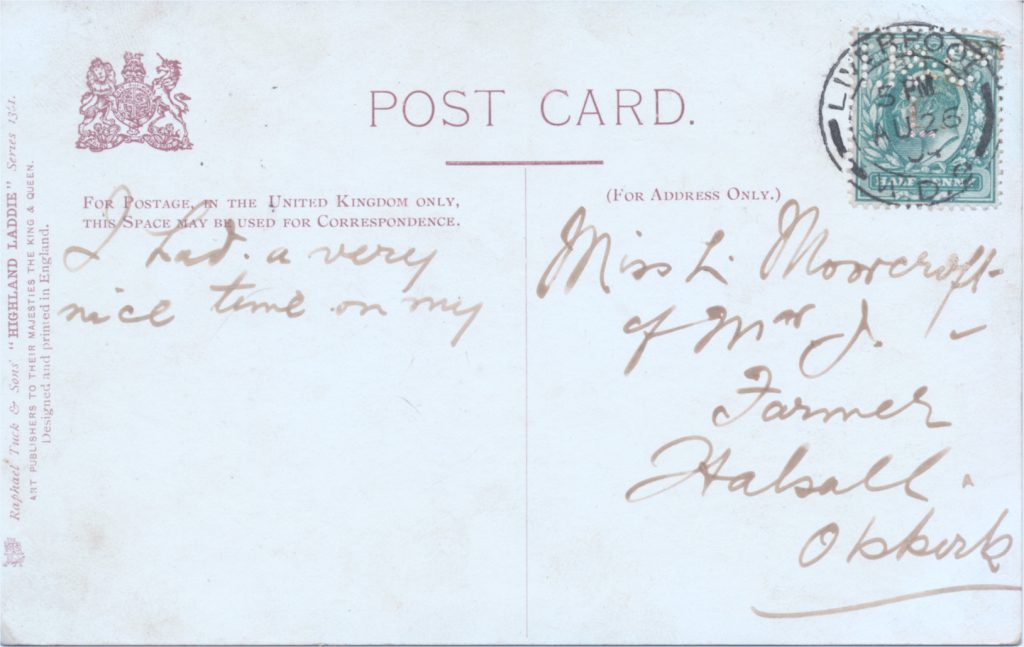 POST CARD.
FOR POSTAGE, IN THE UNITED KINGDOM ONLY,
THIS SPACE MAY BE USED FOR CORRESPONDENCE.
(FOR ADDRESS ONLY.)
I had. a very
nice time on my
Miss L. Moorcroft
of Mr J. -
Farmer
Halsall.
LIVERPOOL
5 PM
AU 26
04
HALFPENNY
Raphael Tuck & Sons' "HIGHLAND LADDIE" Series
ART PUBLISHERS TO THEIR MAJESTIES THE KING & QUEEN.
Designed and printed in England.